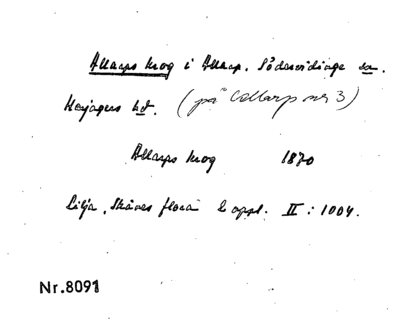 Allarps krog i Allarp. Södervidinge sn.
Harjagers hd. (på Allarp nr 3)
Allarps krog 1870
Lilja, Skånes flora 2 uppl. II: 1004.
Nr.8091